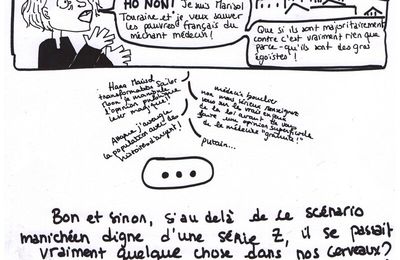 HO NON! Je suis Marisol
Touraine et je veux sauver
les pauvres français du
méchant médecin!
Que si ils sont majoritairement
contre c'est vraiment rien que
parce-qu'ils sont des gros
égoïstes!
transformation Sailor
Moon je manipule
l'opinion publique
magique!
j'aveugle
la population avec des
médecin
non mais sérieux
sur le vrai enjeu
de la loi avant de vous
faire une opinion superficielle
de la médecine "gratuite!"
putain...
...
Bon et sinon, si au delà de ce scénario
manichéen digne d'une série Z, il se passait
vraiment quelque chose dans nos cerveaux?